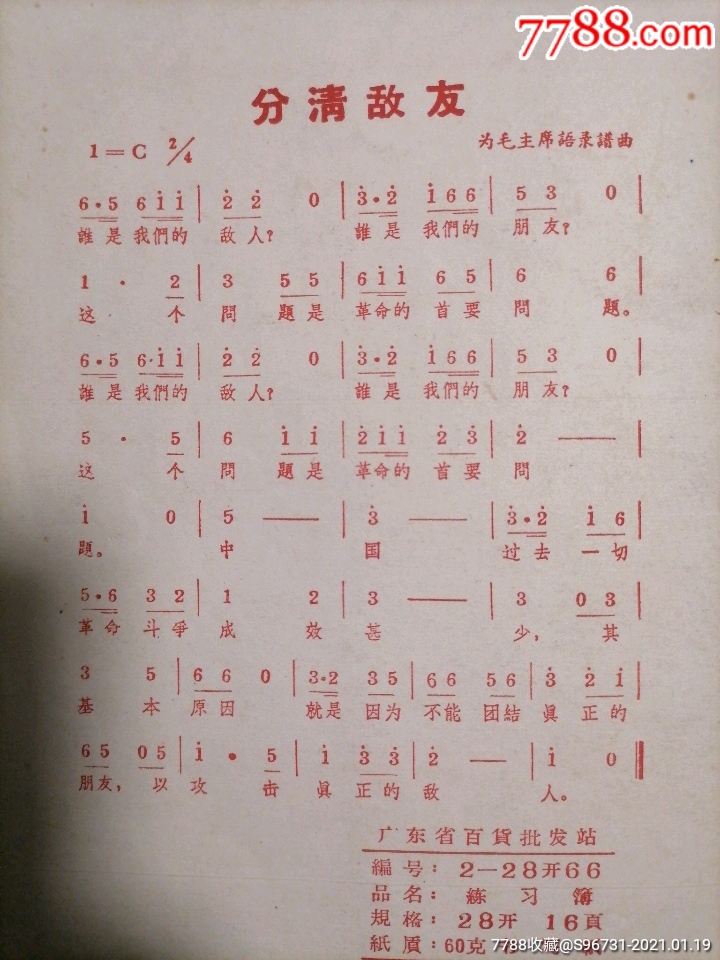 7788.com
分清敌友
1=C 2/4
为毛主席語录譜曲
6·5 6i̇i̇ | 2̇ 2̇ 0 | 3̇·2̇ i̇66 | 5 3 0 |
誰是我們的 敌人? 誰是 我們的 朋友?
1 · 2 | 3 5 5 | 6i̇i̇ 6 5 | 6 6 |
这 个 問 題是 革命的 首要 問 題。
6·5 6·i̇i̇ | 2̇ 2̇ 0 | 3̇·2̇ i̇66 | 5 3 0 |
誰是我們的 敌人? 誰是 我們的 朋友?
5 · 5 | 6 i̇ i̇ | 2̇i̇i̇ 2̇ 3̇ | 2̇ — |
这 个 問 題是 革命的 首要 問
i̇ 0 | 5 — | 3̇ — | 3̇·2̇ i̇ 6 |
題。 中 国 过去 一切
5·6 3 2 | 1 2 | 3 — | 3 0 3 |
革命 斗爭 成 效 甚 少, 其
3 5 | 6 6 0 | 3·2 3 5 | 6 6 5 6 | 3̇ 2̇ i̇ |
基 本 原因 就是 因为 不能 团結 眞 正的
6 5 0 5 | i̇ · 5 | i̇ 3̇ 3̇ | 2̇ — | i̇ 0 ‖
朋友, 以 攻 击 眞 正的 敌 人。
广东省百貨批发站
編号: 2—28开66
品名: 练习簿
規格: 28开 16頁
紙質: 60克
7788收藏@S96731-2021.01.19